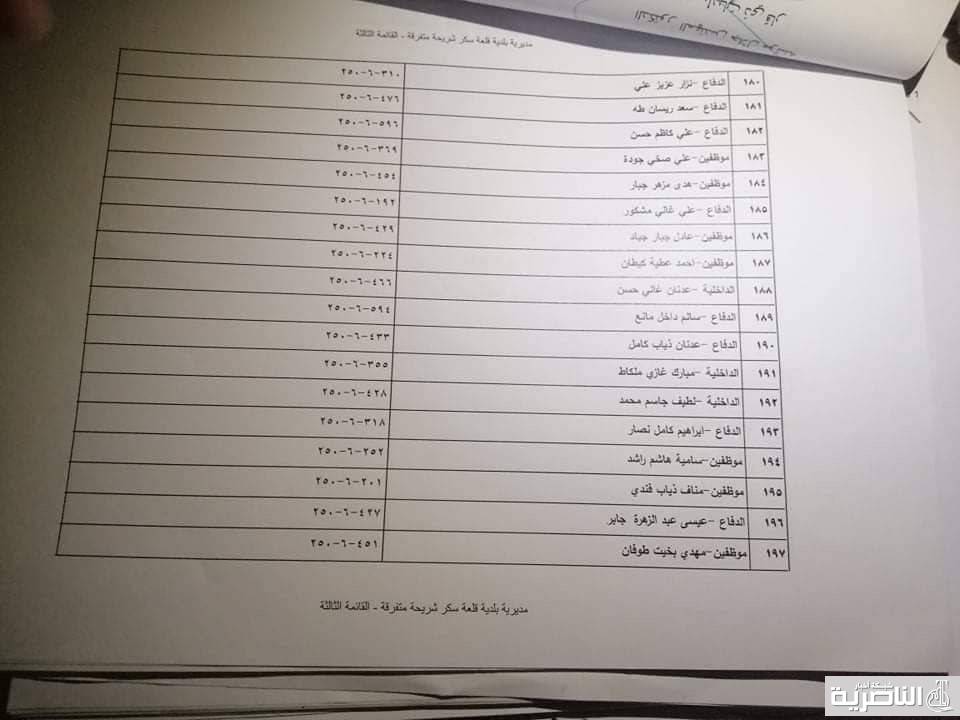 بلديات ذي قار
مديرية بلدية قلعة سكر شريحة متفرقة - القائمة الثالثة
١٨٠ الدفاع -نزار عزيز علي ٢٥٠-٦-٣١٠
١٨١ الدفاع -سعد ريسان طه ٢٥٠-٦-٤٧٦
١٨٢ الدفاع -علي كاظم حسن ٢٥٠-٦-٥٩٦
١٨٣ موظفين-علي صخي جودة ٢٥٠-٦-٣٦٩
١٨٤ موظفين-هدى مزهر جبار ٢٥٠-٦-٤٥٤
١٨٥ الدفاع -علي غالي مشكور ٢٥٠-٦-١٩٢
١٨٦ موظفين-عادل جبار جياد ٢٥٠-٦-٤٢٩
١٨٧ موظفين-احمد عطية كيطان ٢٥٠-٦-٢٢٤
١٨٨ الداخلية -عدنان غالي حسن ٢٥٠-٦-٤٦٦
١٨٩ الدفاع -سالم داخل مانع ٢٥٠-٦-٥٩٤
١٩٠ الدفاع -عدنان ذياب كامل ٢٥٠-٦-٤٣٣
١٩١ الداخلية -مبارك غازي ملكاط ٢٥٠-٦-٣٥٥
١٩٢ الداخلية -لطيف جاسم محمد ٢٥٠-٦-٤٢٨
١٩٣ الدفاع -ابراهيم كامل نصار ٢٥٠-٦-٣١٨
١٩٤ موظفين-سامية هاشم راشد ٢٥٠-٦-٢٥٢
١٩٥ موظفين-مناف ذياب فندي ٢٥٠-٦-٢٠١
١٩٦ الدفاع -عيسى عبد الزهرة جابر ٢٥٠-٦-٤٢٧
١٩٧ موظفين-مهدي بخيت طوفان ٢٥٠-٦-٤٥١
مديرية بلدية قلعة سكر شريحة متفرقة - القائمة الثالثة
شبكة اخبار
الناصرية